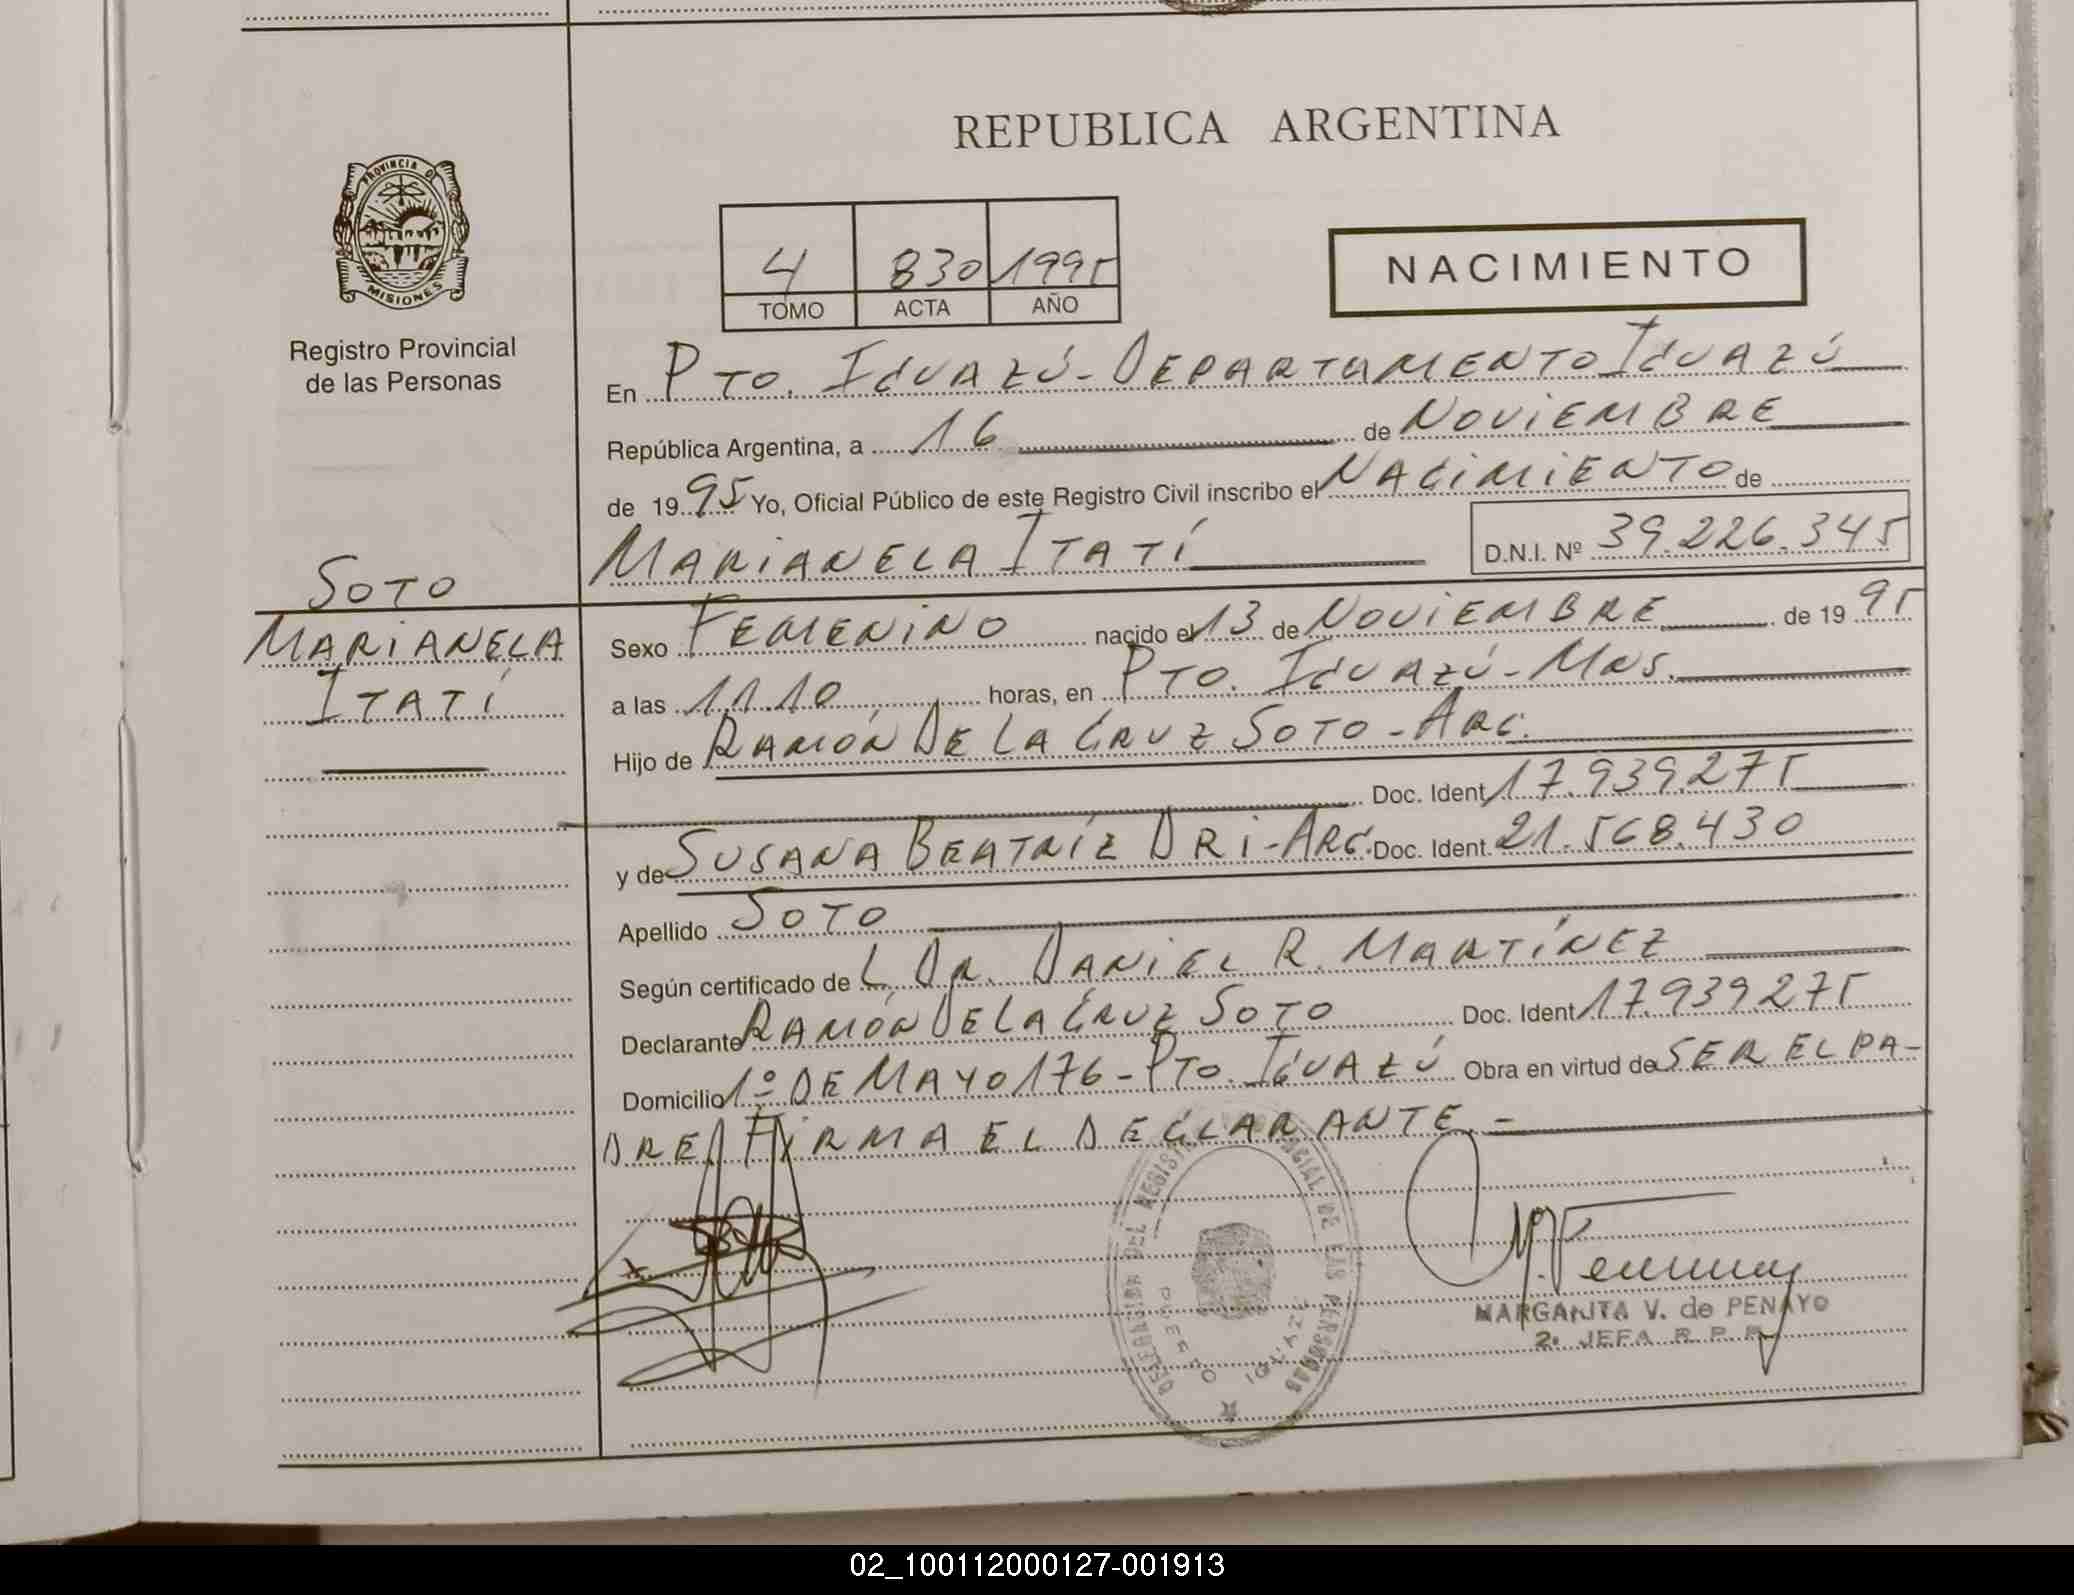 REPUBLICA ARGENTINA
PROVINCIA DE
MISIONES
Registro Provincial
de las Personas
4 830 1995
TOMO ACTA AÑO
NACIMIENTO
En Pto. Iguazú - Departamento Iguazú
República Argentina, a 16 de Noviembre
de 1995 Yo, Oficial Público de este Registro Civil inscribo el Nacimiento de
Marianela Itatí D.N.I. Nº 39.226.345
Soto
Marianela
Itatí
Sexo Femenino nacido el 13 de Noviembre de 1995
a las 11.10 horas, en Pto. Iguazú - Mns.
Hijo de Ramón De La Cruz Soto - Arg.
Doc. Ident 17.939.275
y de Susana Beatríz Dri - Arg. Doc. Ident. 21.568.430
Apellido Soto
Según certificado de L Dr. Daniel R. Martínez
Declarante Ramón De La Cruz Soto Doc. Ident 17.939.275
Domicilio 1º de Mayo 176 - Pto. Iguazú Obra en virtud de ser el pa-
dre. Firma el declarante. -
DELEGACION DEL REGISTRO PROVINCIAL DE LAS PERSONAS
PUERTO IGUAZU
MARGARITA V. de PENAYO
2º JEFA R. P. P.
02_100112000127-001913